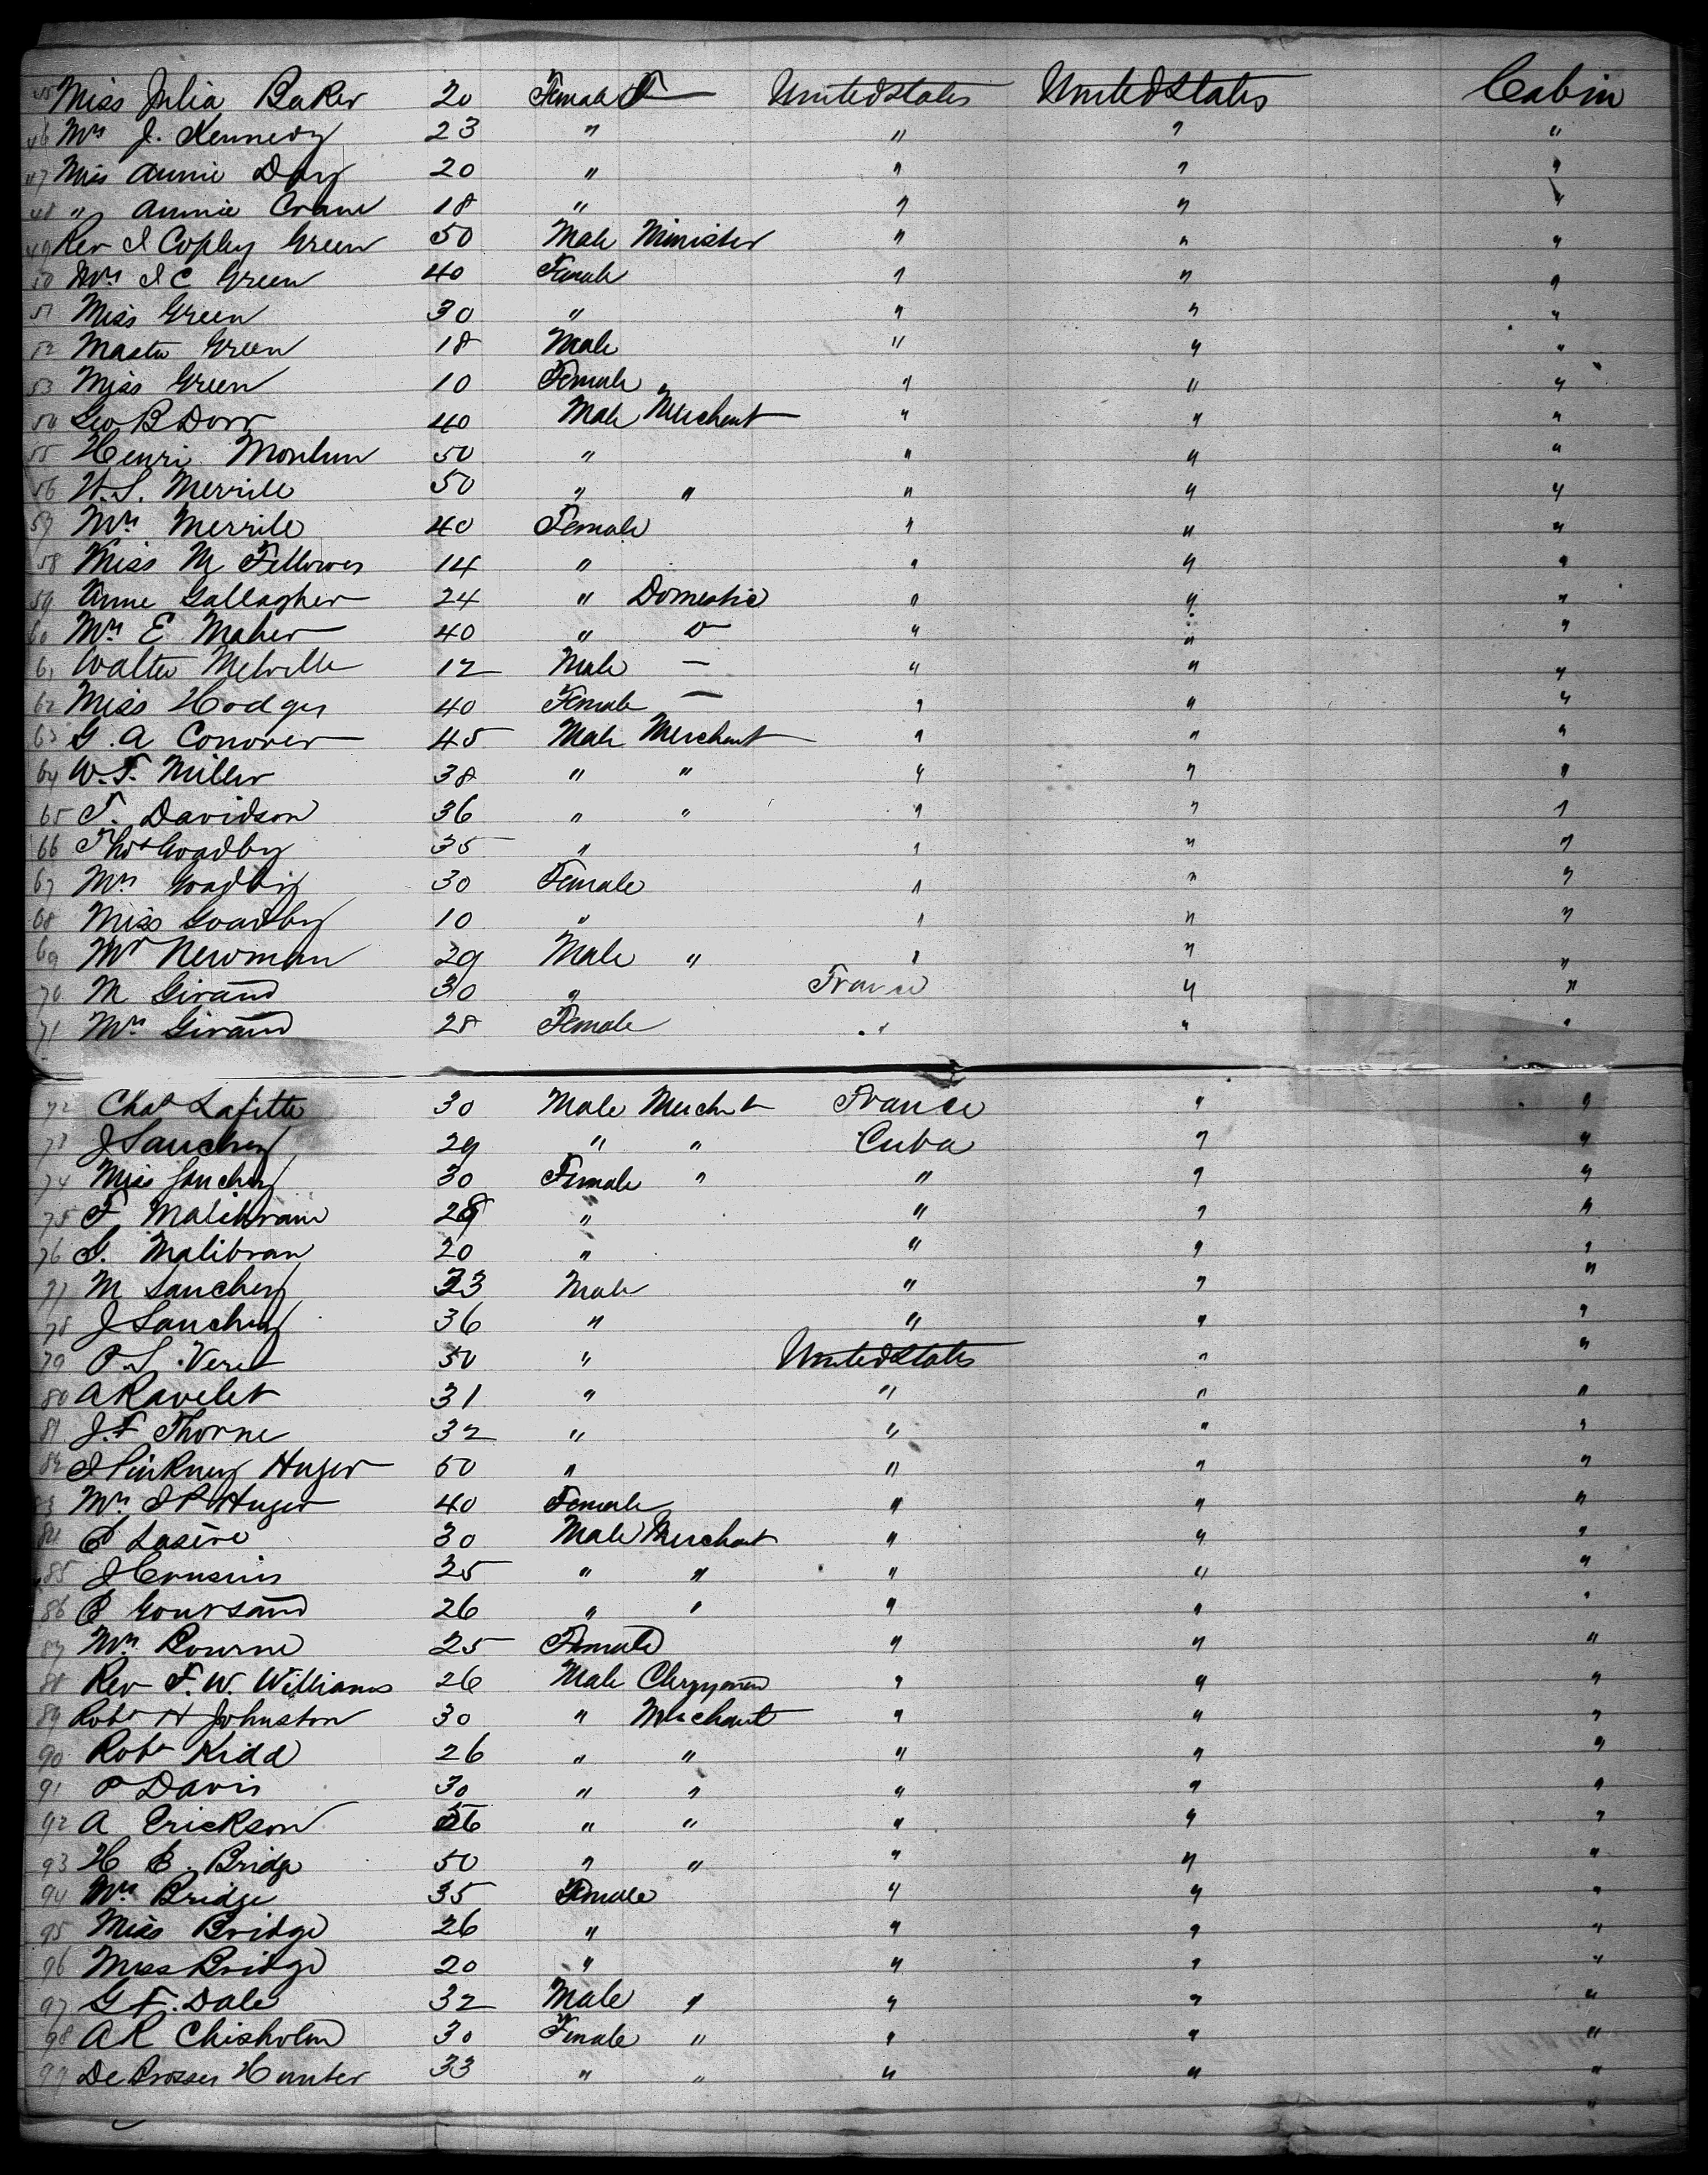 45 Miss Julia Baker 20 Female United States United States Cabin
46 Mrs J. Kennedy 23 " " " "
47 Miss Annie Day 20 " " " "
48 " Annie Crane 18 " " " "
49 Rev I Copley Green 50 Male Minister " " "
50 Mrs I C Green 40 Female " " "
51 Miss Green 30 " " " "
52 Master Green 18 Male " " "
53 Miss Green 10 Female " " " "
54 Geo B Dorr 40 Male Merchant " " "
55 Henri 50 " " " "
56 Merrile 50 " " " " "
57 Mrs Merrile 40 Female " " "
58 Miss M Fellowes 14 " " " "
59 Anne Gallagher 24 " Domestic " " "
60 Mrs E Maher 40 " " " "
61 Walter Melville 12 Male — " " "
62 Miss Hodges 40 Female — " " "
63 G. A Conover 45 Male Merchant " " "
64 W. T. Miller 38 " " " " "
65 T. Davidson 36 " " " " "
66 Thos Goadby 35 " " " "
67 Mrs Goadby 30 Female " " "
68 Miss Goadby 10 " " " "
69 Mr Newman 29 Male " " " "
70 M Giraud 30 " France " "
71 Mrs Giraud 28 Female " " "
72 Chas Lafitte 30 Male Mercht France " "
73 J Sanchez 29 " " Cuba " "
74 Miss Sanchez 30 Female " " " "
75 F Malibran 28 " " " "
76 G. Malibran 20 " " " "
77 M Sanchez 33 Male " " "
78 J Sanchez 36 " " " "
79 P. S. Veret 50 " United States " "
80 A Ravelet 31 " " " "
81 J. F Thorne 32 " " " "
82 I Pinkney Huger 50 " " " "
83 Mrs I P Huger 40 Female " " "
84 E Lasere 30 Male Merchant " " "
85 J Crusius 25 " " " " "
86 E Goursaud 26 " " " " "
87 Mrs Bourne 25 Female " " "
88 Rev F. W. Williams 26 Male Clergyman " " "
89 Robt H Johnston 30 " Merchant " " "
90 Robt Kidd 26 " " " " "
91 P Davis 30 " " " " "
92 A Erickson 36 " " " " "
93 H E. Bridge 50 " " " " "
94 Mrs Bridge 35 Female " " "
95 Miss Bridge 26 " " " "
96 Miss Bridge 20 " " " "
97 G F. Dale 32 Male " " " "
98 A R Chisholm 30 Female " " " "
99 De Brosses Hunter 33 " " " " "
"